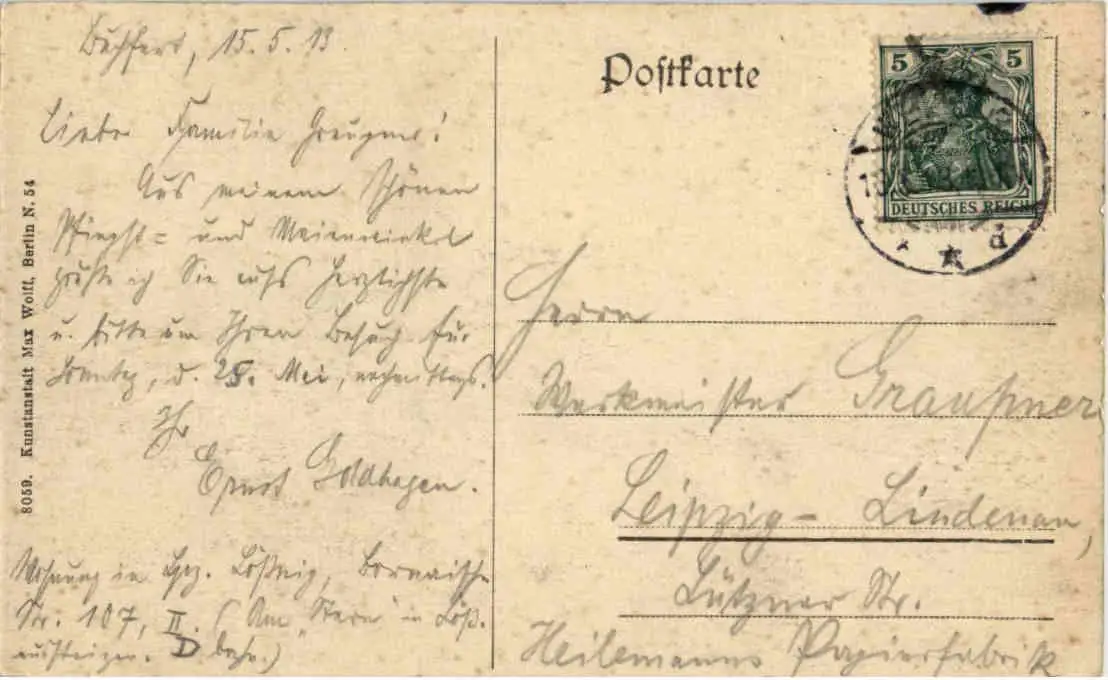 15. 5. 13.
Liebe Familie
Aus meinem schönen
Pfingst= und Maienwinkel
grüße ich Sie aufs herzlichste
u. bitte um Ihren Besuch für
Sonntag, d. 25. Mai, nachmittags.
Ihr
Ernst Goldhagen.
Wohnung in Lpz. Lößnig, Bornaische
Str. 107, II. (Am "Stern" in Löß.
aussteigen.
8059. Kunstanstalt Max Wolff, Berlin N. 54
Postkarte
5 5
DEUTSCHES REICH
d
Herrn
Werkmeister Graupner
Leipzig-Lindenau,
Lützner Str.
Heilemanns Papierfabrik